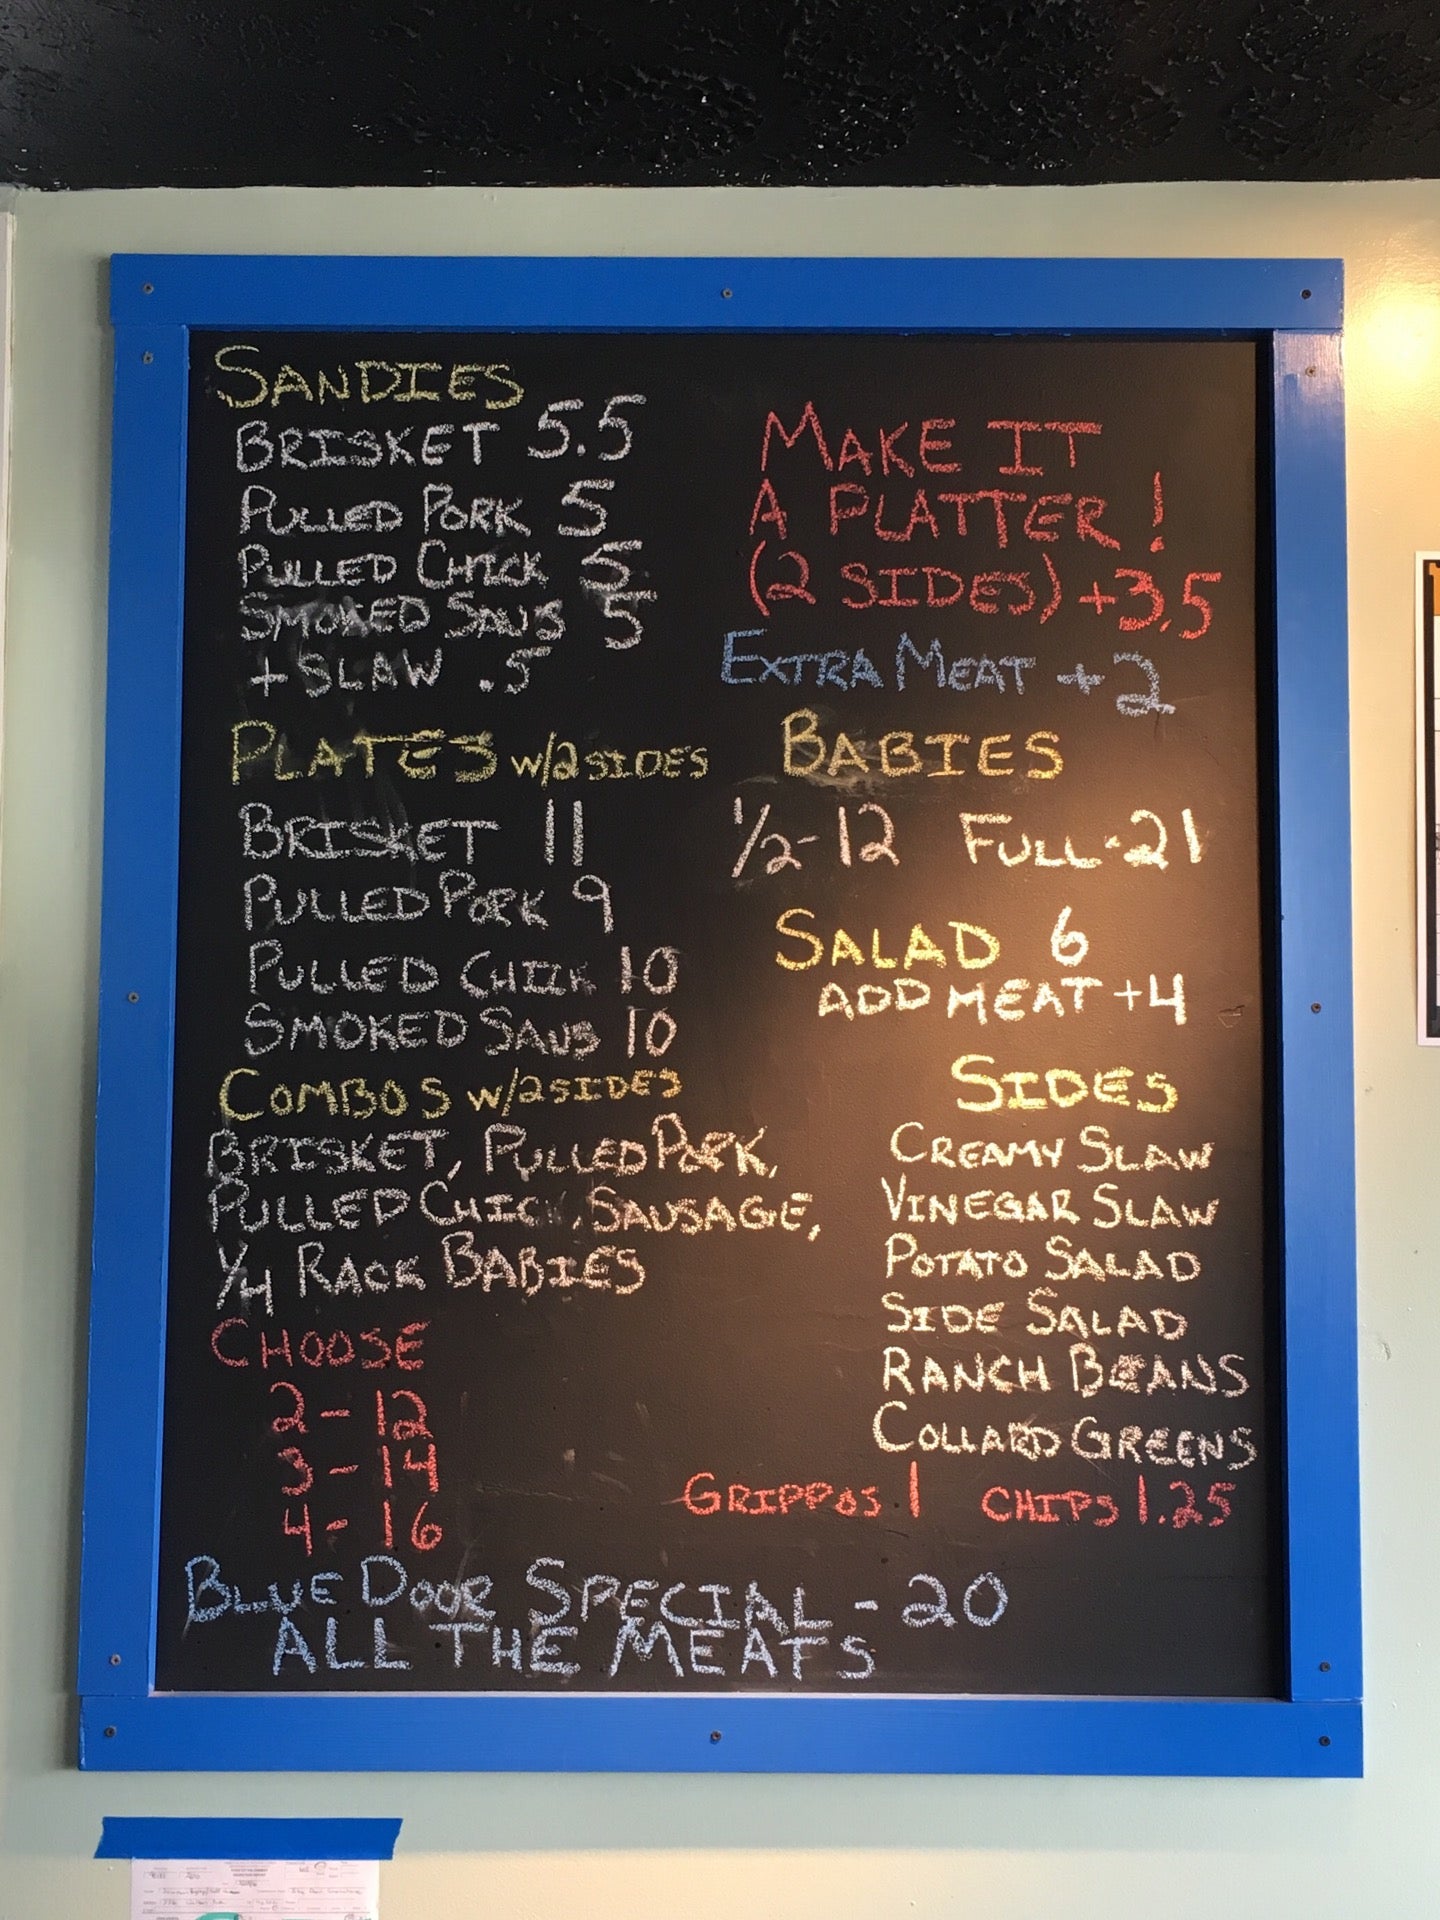 SANDIES
BRISKET 5.5
PULLED PORK 5
PULLED CHICK 5
SMOKED SAUS 5
+ SLAW .5
PLATES W/2 SIDES
BRISKET 11
PULLED PORK 9
PULLED CHICK 10
SMOKED SAUS 10
COMBOS W/2 SIDES
BRISKET, PULLED PORK,
PULLED CHICK, SAUSAGE,
1/4 RACK BABIES
CHOOSE
2 - 12
3 - 14
4 - 16
MAKE IT
A PLATTER!
(2 SIDES) +3.5
EXTRA MEAT +2
BABIES
1/2 - 12 FULL - 21
SALAD 6
ADD MEAT +4
SIDES
CREAMY SLAW
VINEGAR SLAW
POTATO SALAD
SIDE SALAD
RANCH BEANS
COLLARD GREENS
GRIPPOS 1 CHIPS 1.25
BLUE DOOR SPECIAL - 20
ALL THE MEATS